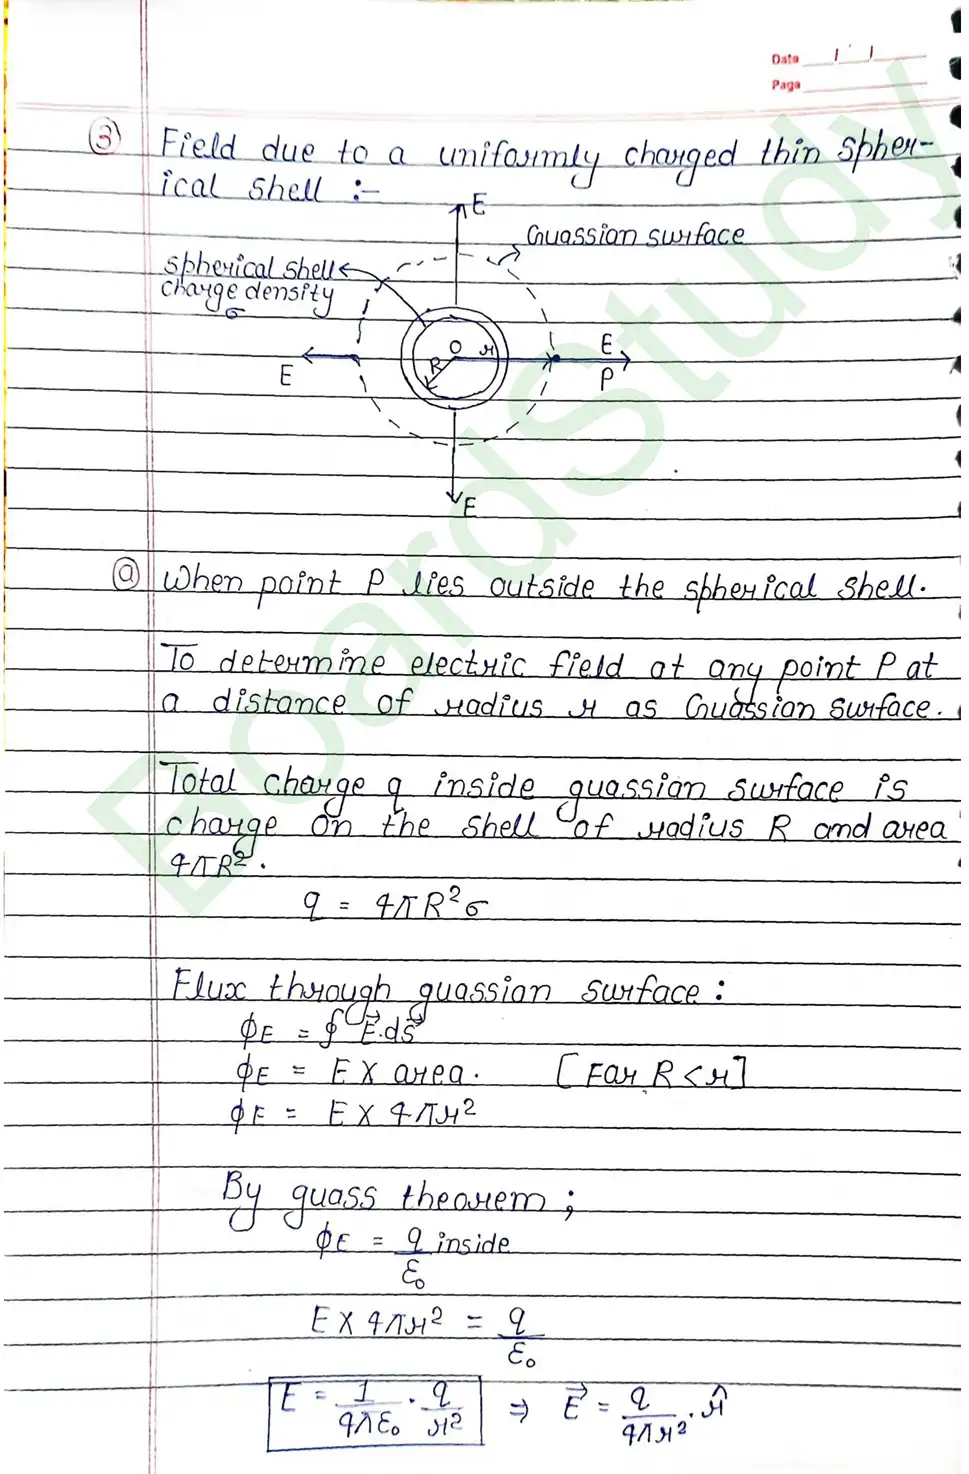 Date
Page
③ Field due to a uniformly charged thin spher-
ical shell :-
E
Guassian surface
spherical shell
charge density
σ
O r E
R
E P
E
ⓐ When point P lies outside the spherical shell.
To determine electric field at any point P at
a distance of radius r as Guassian surface.
Total charge q inside guassian surface is
charge on the shell of radius R and area
4πR².
q = 4πR²σ
Flux through guassian surface :
ϕE = ∮ E⃗.ds⃗
ϕE = E X area. [For R < r]
ϕE = E X 4πr²
By guass theorem ;
ϕE = q inside / ε₀
E X 4πr² = q / ε₀
E = 1/4πε₀ . q/r² ⇒ E⃗ = q/4πr² . r̂
BoardStudy